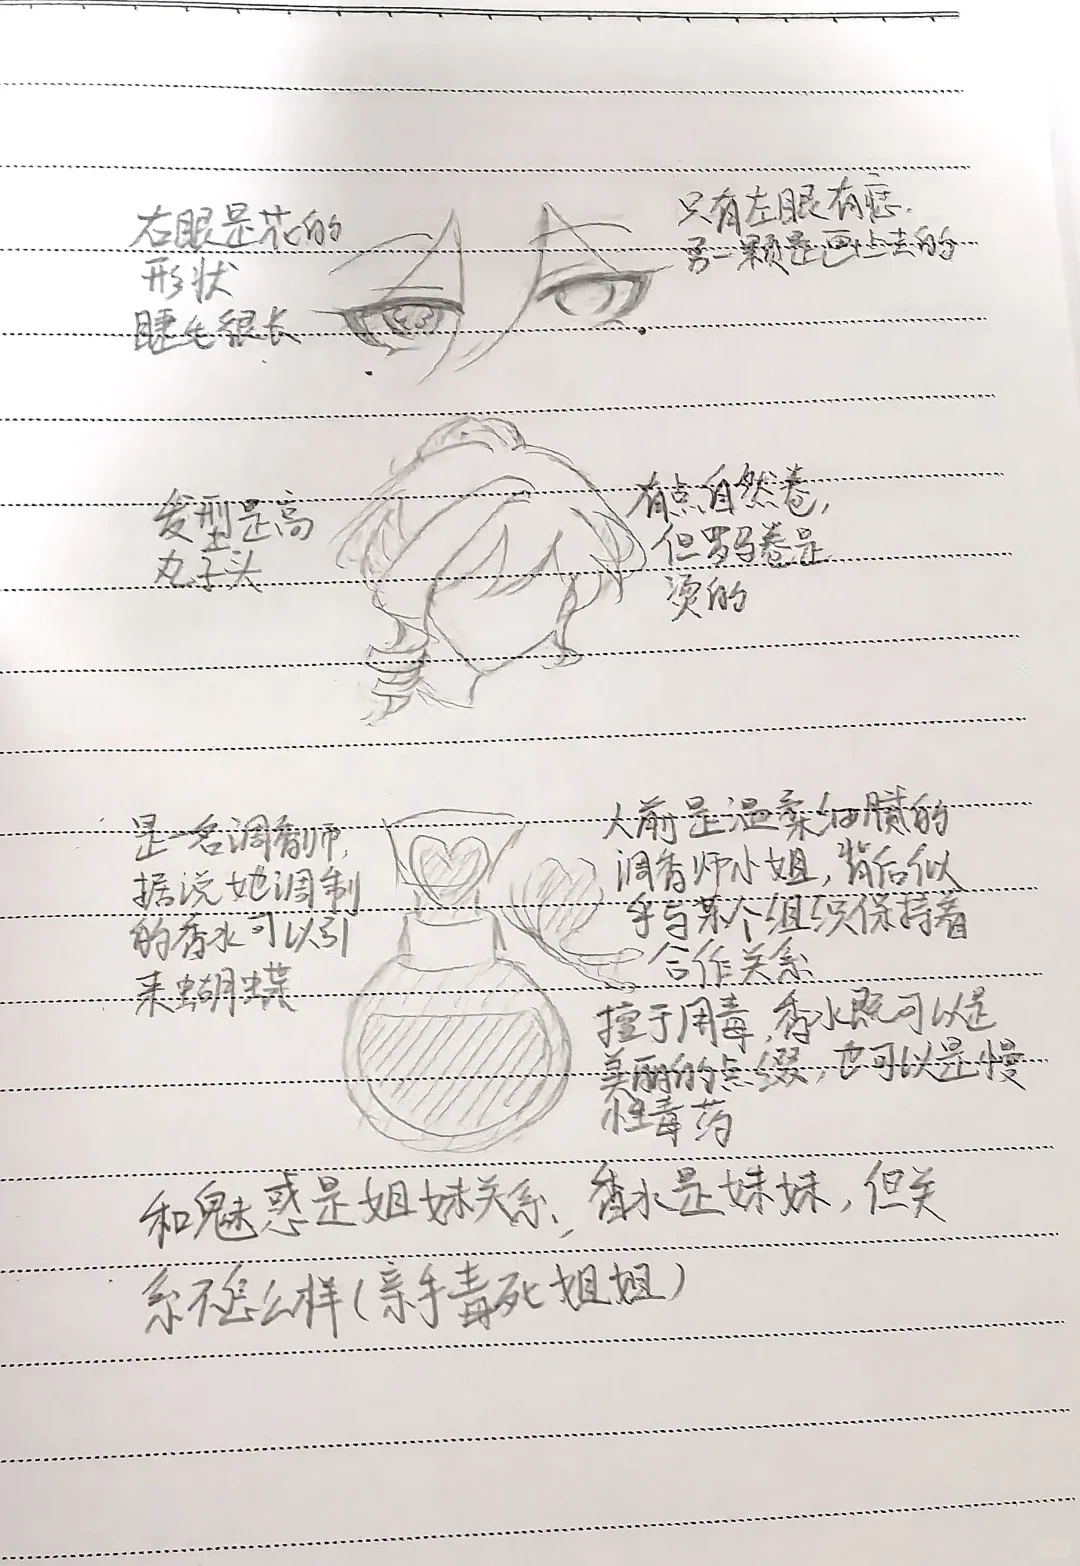 右眼是花的
形状
睫毛很长
只有左眼有痣.
另一颗是画上去的
发型是高
丸子头
有点自然卷,
但罗马卷是
烫的
是一名调香师,
据说她调制
的香水可以引
来蝴蝶
人前是温柔细腻的
调香师小姐, 背后似
乎与某个组织保持着
合作关系
擅于用毒, 香水既可以是
美丽的点缀, 也可以是慢
性毒药
和魅惑是姐妹关系, 香水是妹妹, 但关
系不怎么样(亲手毒死姐姐)